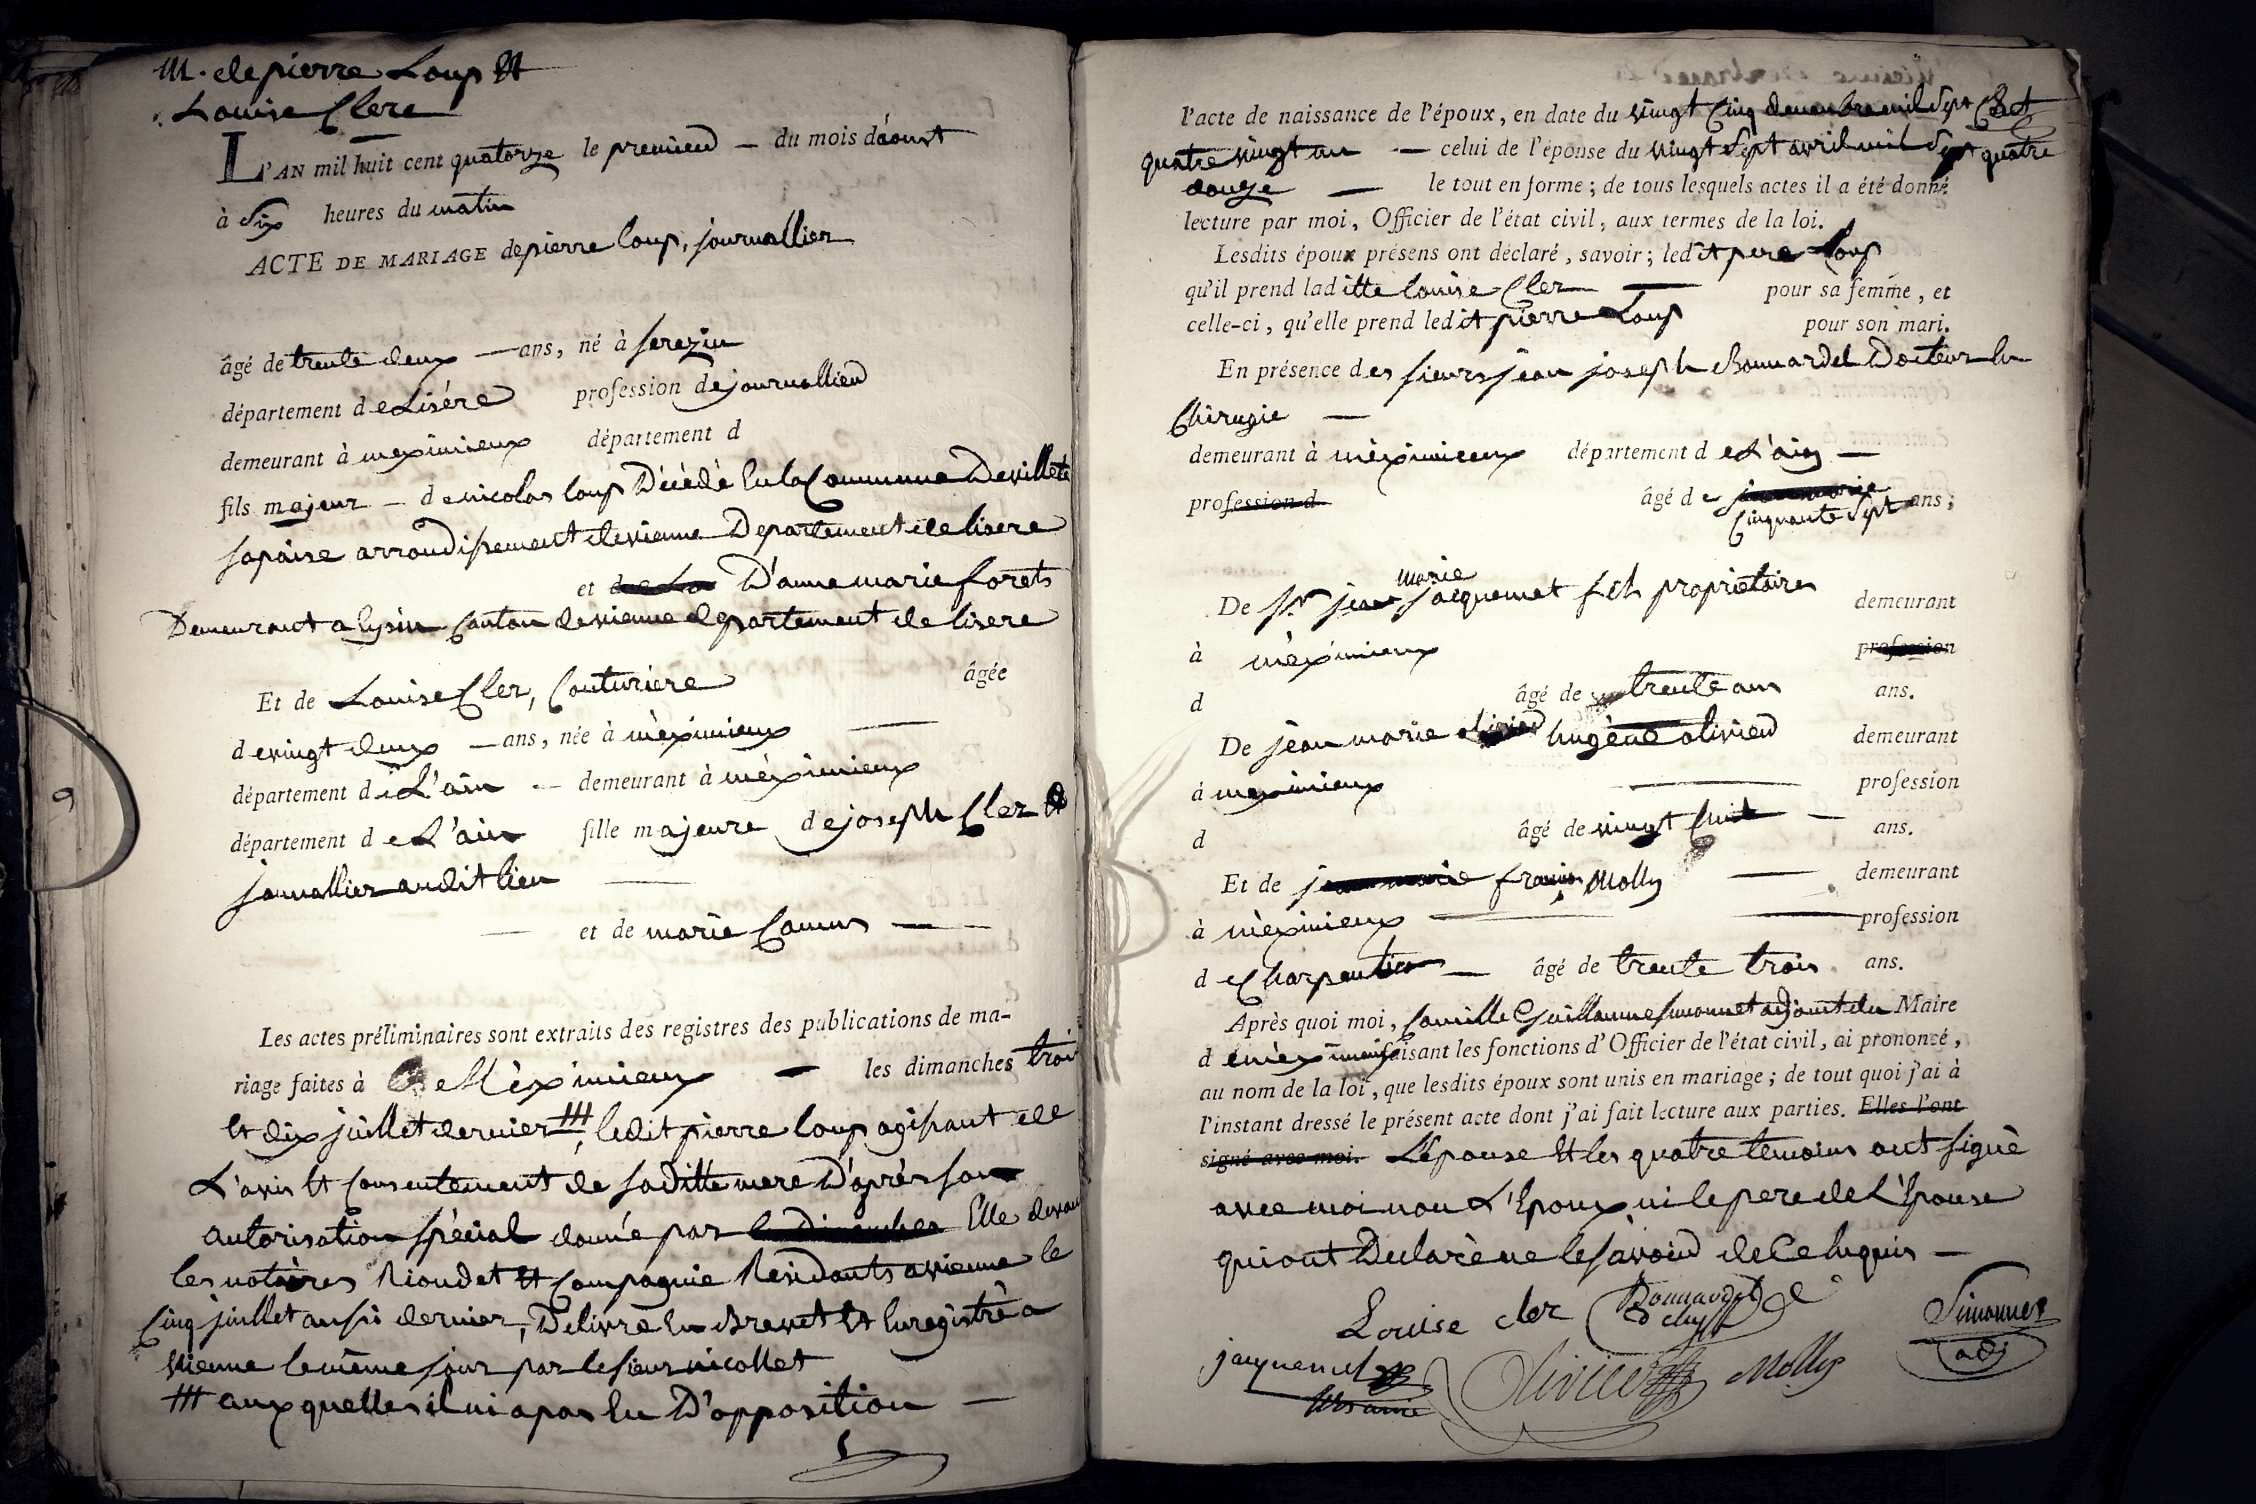 M. de pierre Loup et
Louise Clerc
L'AN mil huit cent quatorze le premier — du mois d'aoust
à Six heures du matin
ACTE DE MARIAGE de pierre loup, journallier
âgé de trente deux — ans, né à Serezin
département de Lisére profession de journallier
demeurant à meximieux département d
fils majeur — de nicolas loup Décédé En la Commune De villete
Sapaise arrondissement de vienne Departement de lisere
et D'anne marie forets
Demeurant a canton de vienne departement de lisere
Et de Louise Cler, Couturiere âgée
de vingt deux — ans, née à mèximieux
département de L'ain — demeurant à mèximieux
département de L'ain fille majeure de joseph Cler et
journallier audit lieu
et de marie Camus —
Les actes préliminaires sont extraits des registres des publications de ma-
riage faites à Mèximieux — les dimanches trois
et dix juillet dernier ///, ledit pierre loup agissant de
L'avis et consentement de saditte mere D'après son
autorisation spécial donnée par Elle devant
les notaires Rioudet et compagnie Residants a vienne le
Cinq juillet aussi dernier, Delivré En Brevet et Enregistré a
vienne le même jour par le sieur nicollet
/// aux quelles il ni a pas Eu D'opposition —
l'acte de naissance de l'époux, en date du vingt Cinq mil Sept Cent
quatre vingt un — celui de l'épouse du vingt Sept avril mil Sept quatre
douze — le tout en forme ; de tous lesquels actes il a été donné
lecture par moi, Officier de l'état civil, aux termes de la loi.
Lesdits époux présens ont déclaré, savoir ; ledit Loup
qu'il prend laditte louise Cler — pour sa femme, et
celle-ci, qu'elle prend ledit pierre Loup pour son mari.
En présence des sieurs jean joseph Bonnardel Docteur En
Chirugie —
demeurant à mèximieux département de L'ain —
profession d âgé de Cinquante Sept ans ;
De Sr jean marie jacquemet fils propriétaire demeurant
à mèximieux profession
d âgé de trente ans ans.
De jean marie Eugène olivier demeurant
à meximieux profession
d âgé de vingt huit — ans.
Et de francois Molly — demeurant
à mèximieux — profession
de Charpentier — âgé de trente trois ans.
Après quoi moi, Camille Guillaume Simonnet adjoint du Maire
de mèximieux faisant les fonctions d'Officier de l'état civil, ai prononcé,
au nom de la loi, que lesdits époux sont unis en mariage ; de tout quoi j'ai à
l'instant dressé le présent acte dont j'ai fait lecture aux parties. Elles l'ont
signé avec moi. L'épouse et les quatre temoins ont signé
avec moi non L'Epoux ni le pere de L'Epouse
qui ont Declaré ne le savoir de ce Enquis —
Louise cler Bonnardel
Simonnet
adj
jacquemet Olivier Molly